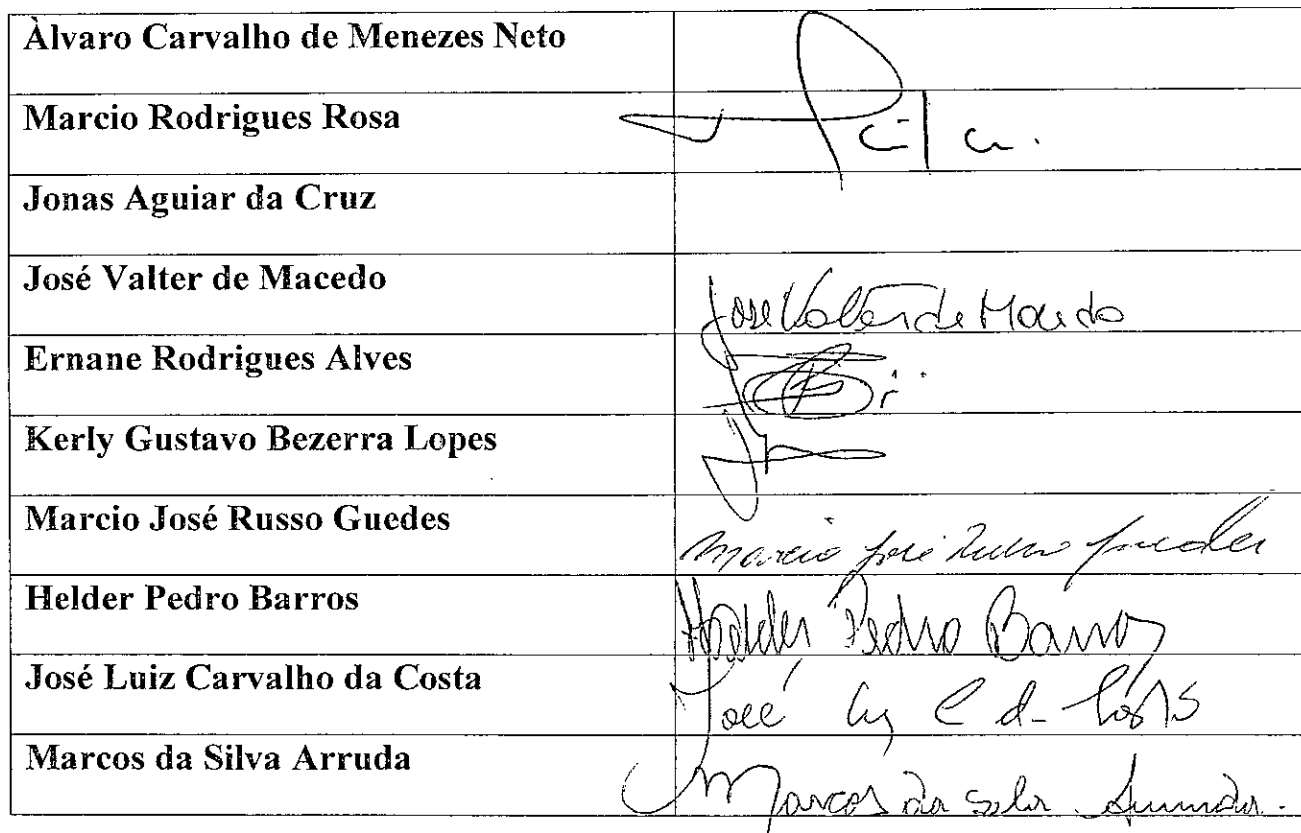 Àlvaro Carvalho de Menezes Neto
Marcio Rodrigues Rosa
Jonas Aguiar da Cruz
José Valter de Macedo
José Valter de Macedo
Ernane Rodrigues Alves
Kerly Gustavo Bezerra Lopes
Marcio José Russo Guedes
Marcio José Russo Guedes
Helder Pedro Barros
Helder Pedro Barros
José Luiz Carvalho da Costa
José Luiz C da Costa
Marcos da Silva Arruda
Marcos da Silva Arruda.